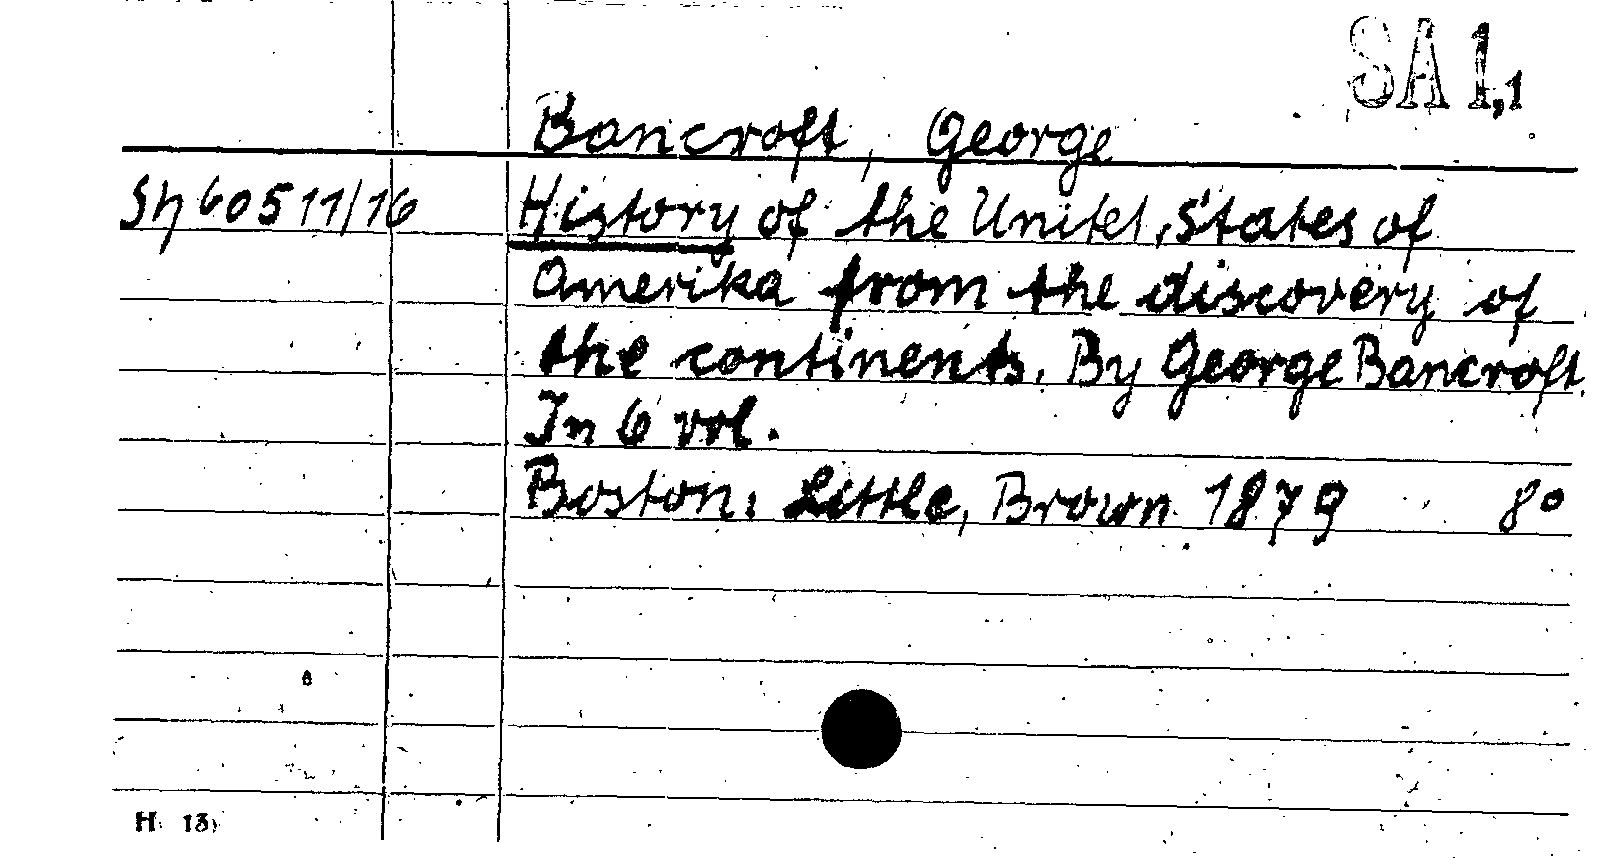 SA 1,1
Bancroft, George
Sh 60511/16 History of the United States of
Amerika from the discovery of
the continents. By George Bancroft.
In 6 vol.
Boston: Little, Brown 1879 8°
H 13)